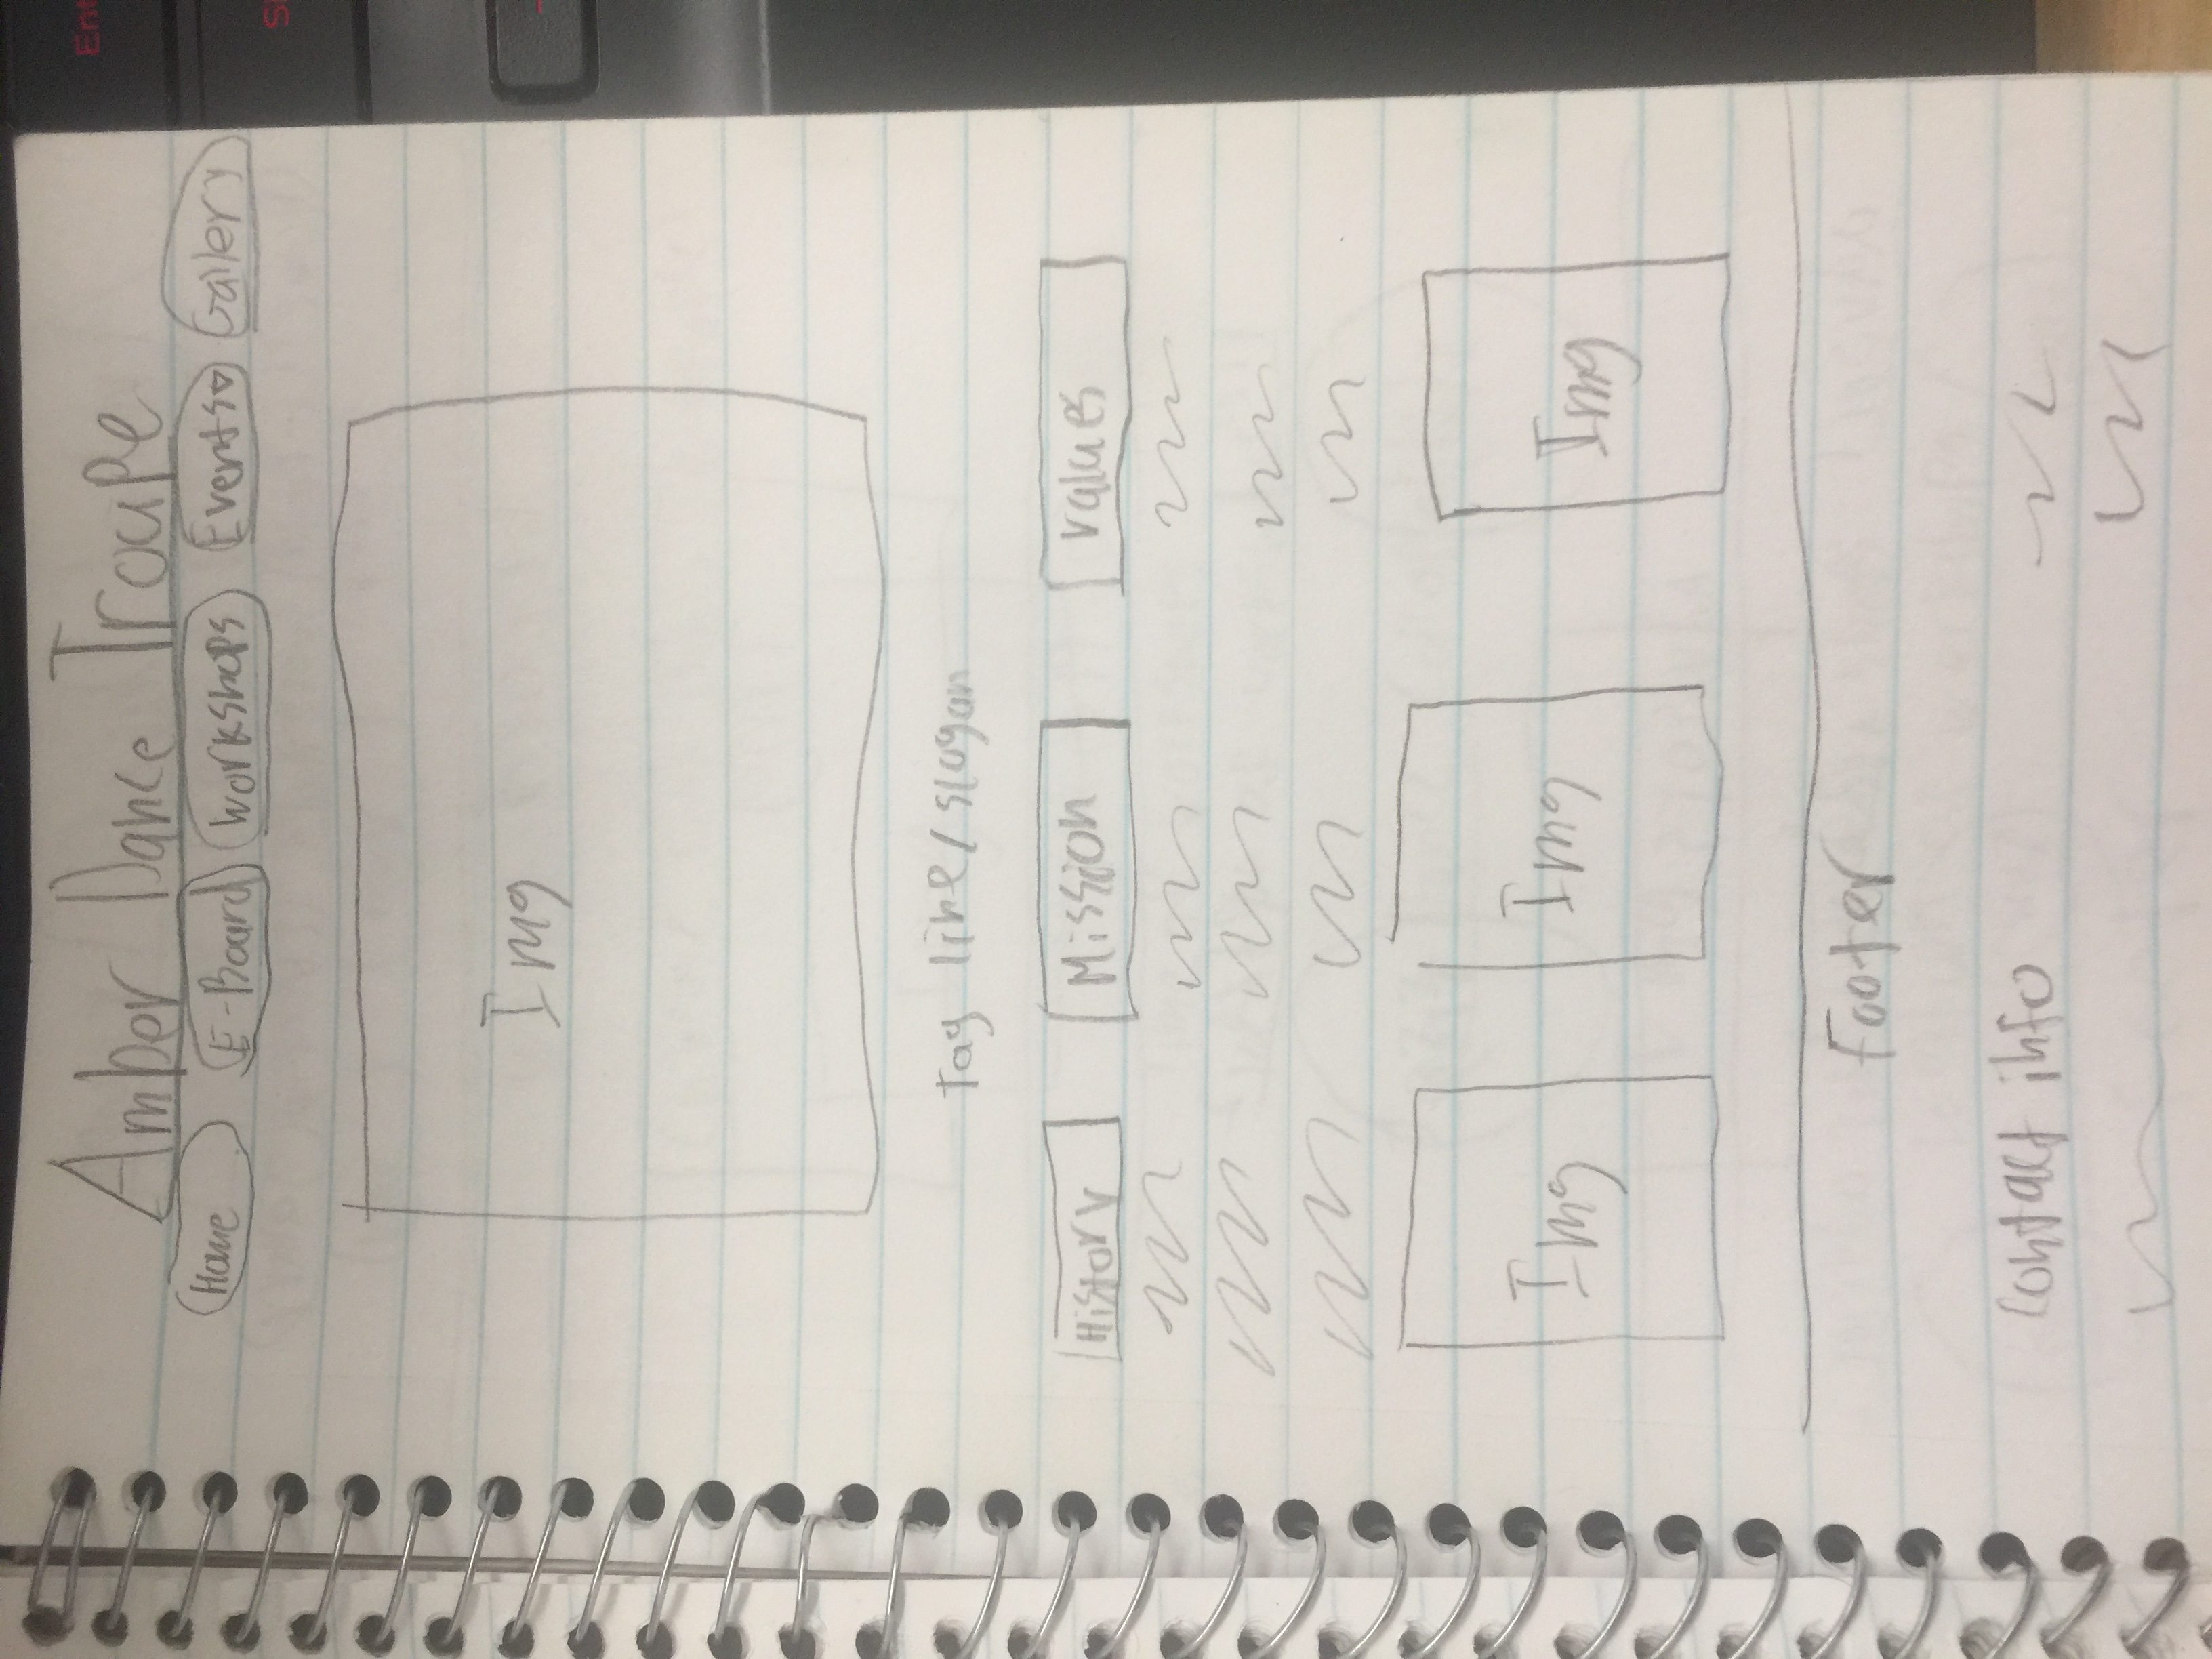 Amber Dance Troupe
Home E-Board Workshops Events Gallery
Img
tag line/slogan
History Mission values
Img Img Img
Footer
contact info